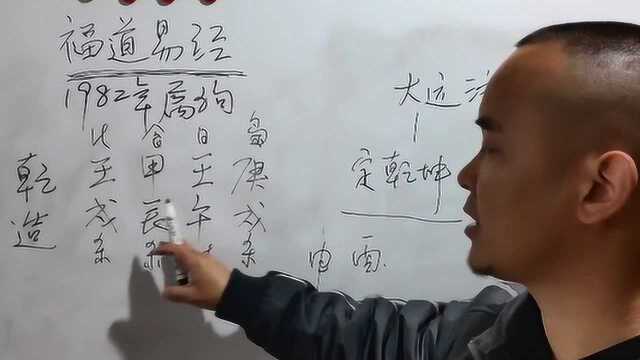 福道易经
1982年属狗
比 食 日 枭
乾造
壬 甲 壬 庚
戌 辰 午 戌
杀 杀 杀
大运
定乾坤